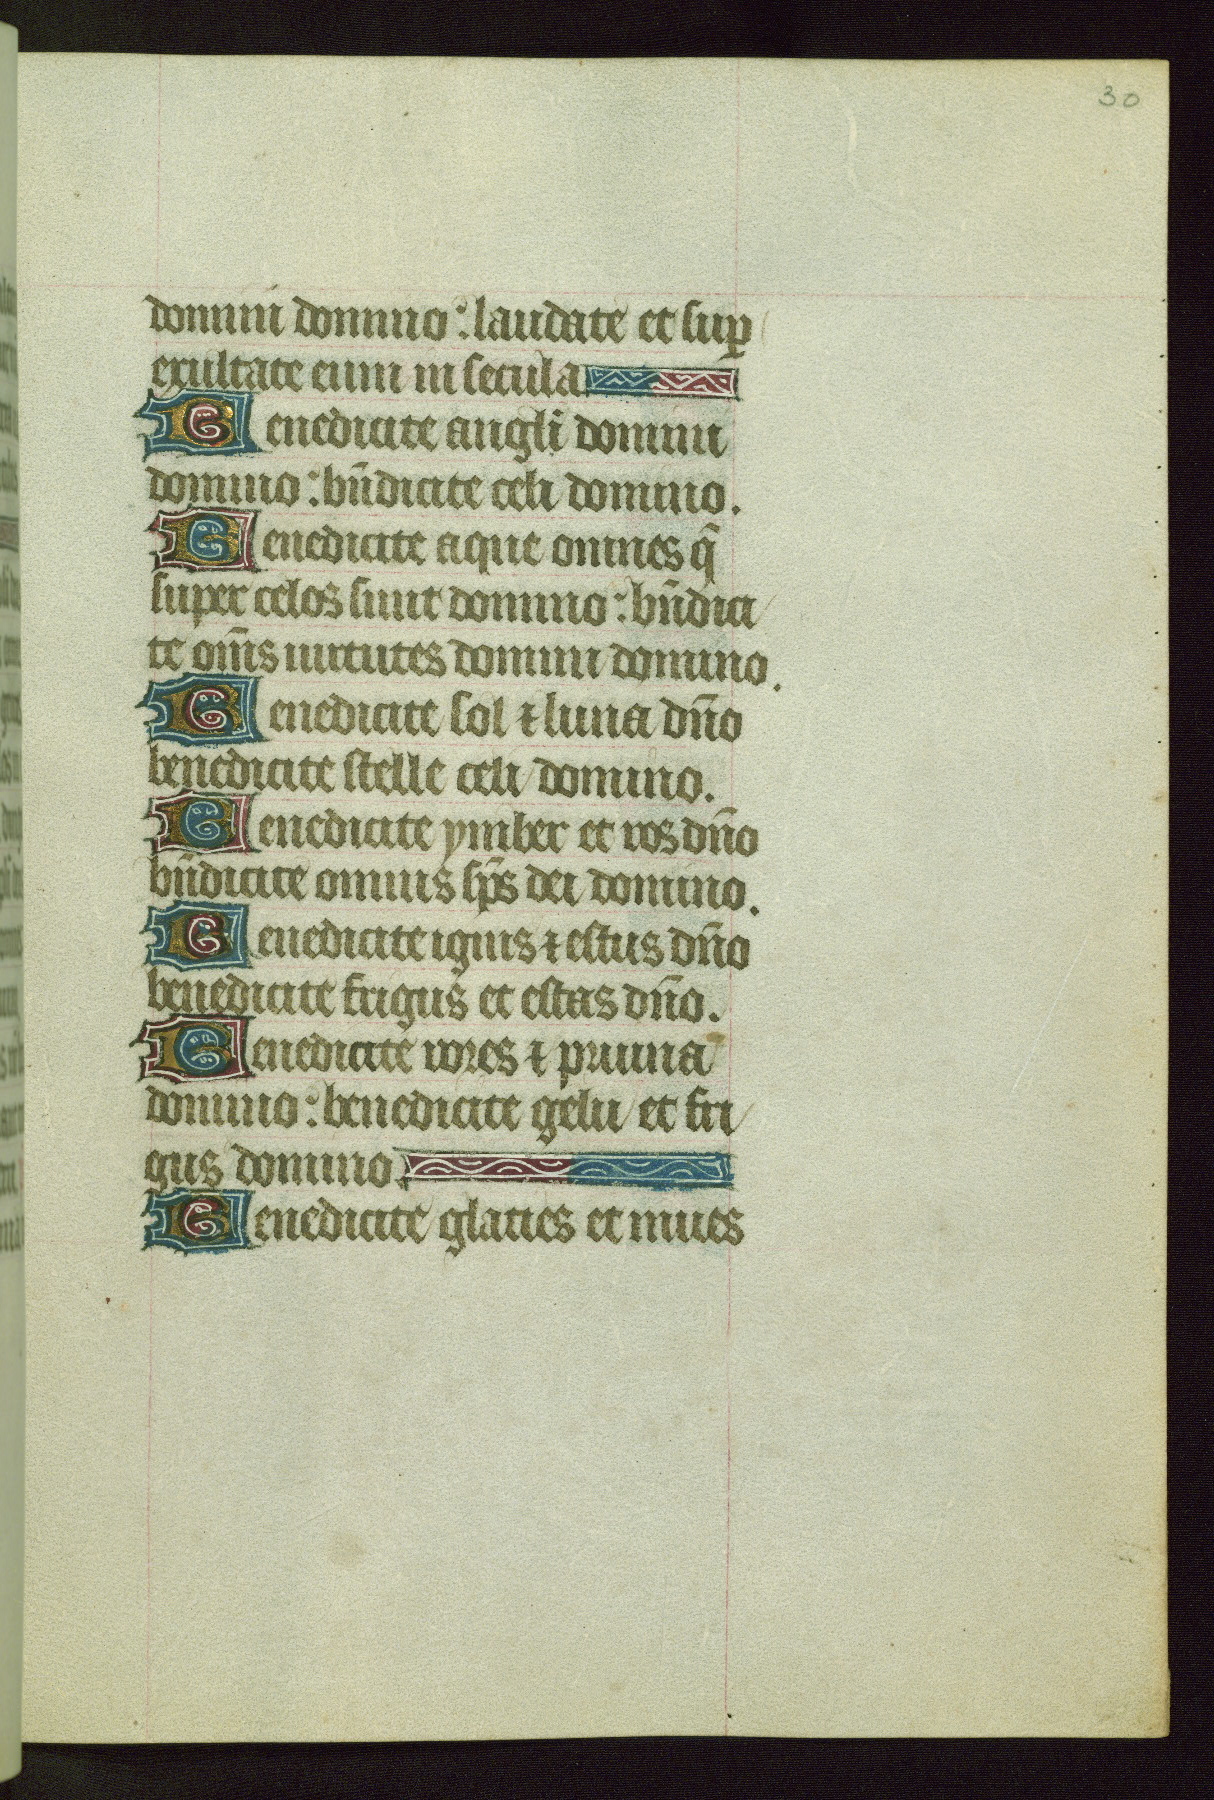 30
domini domino: laudate et suꝑ
exultate eum in secula
Benedicite angl̄i domini
domino: bn̄dicite celi domino.
Benedicite aque omnes q̄
super celos sunt domino: bn̄dici
te om̄s uirtutes domini domino.
Benedicite sol ⁊ luna dn̄o
benedicite stelle celi domino.
Benedicite ymber et ros dn̄o
bn̄dicite omnis sp̄s dei domino.
Benedicite ignis ⁊ estus dn̄o
benedicite frigus et estas dn̄o.
Benedicite rores ⁊ pruina
domino: benedicite gelu et fri
gus domino.
Benedicite glacies et niues